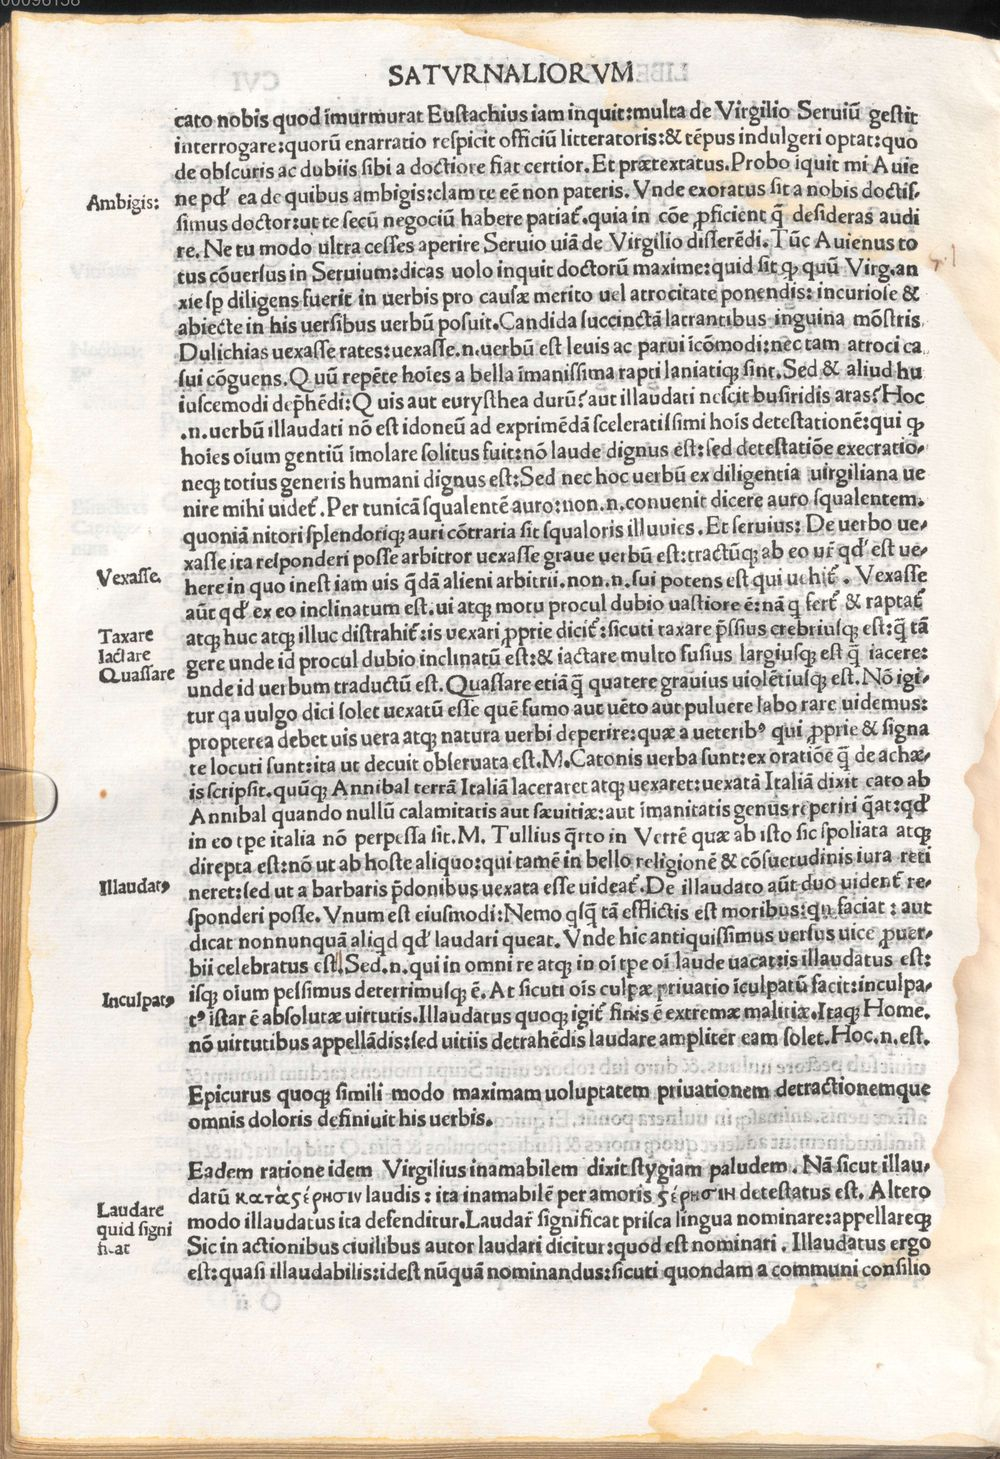 SATVRNALIORVM
cato nobis quod ĩmurmurat Eustachius iam inquit:multa de Virgilio Seruiũ gestit
interrogare:quorũ enarratio respicit officiũ litteratoris:& tẽpus indulgeri optat:quo
de obscuris ac dubiis sibi a doctiore fiat certior. Et prætextatus. Probo iquit mi Auie
Ambigis:
ne ꝙđ ea de quibus ambigis:clam te eẽ non pateris. Vnde exoratus sit a nobis doctis/
simus doctor:ut te secũ negociũ habere patiaꞇ̃.quia in cõe ꝓficient q̃ desideras audi
re. Ne tu modo ultra cesses aperire Seruio uiã de Virgilio disserẽdi. Tũc Auienus to
tus cõuersus in Seruium:dicas uolo inquit doctorũ maxime:quid sit ꝙ quũ Virg.an
xie sꝑ diligens fuerit in uerbis pro causæ merito uel atrocitate ponendis: incuriose &
abiecte in his uersibus uerbũ posuit.Candida succinctã latrantibus inguina mõstris
Dulichias uexasse rates:uexasse.n.uerbũ est leuis ac parui ĩcõmodi:nec tam atroci ca
sui cõguens. Quũ repẽte hoĩes a bella ĩmanissima rapti laniatiqꝫ sint. Sed & aliud hu
iuscemodi dep̃hẽdi: Quis aut eurysthea durũ? aut illaudati nescit busiridis aras? Hoc
.n. uerbũ illaudati nõ est idoneũ ad exprimẽdã sceleratissimi hoĩs detestationẽ:qui ꝙ
hoĩes oĩum gentiũ ĩmolare solitus fuit:nõ laude dignus est:sed detestatiõe execratio/
neqꝫ totius generis humani dignus est:Sed nec hoc uerbũ ex diligentia uirgiliana ue
nire mihi uideꞇ̃. Per tunicã squalentẽ auro:non.n.conuenit dicere auro squalentem.
quoniã nitori splendoriqꝫ auri cõtraria sit squaloris illuuies. Et seruius: De uerbo ue/
xasse ita responderi posse arbitror uexasse graue uerbũ est:tractũqꝫ ab eo ur̃ qđ est ue/
Vexasse.
here in quo inest iam uis q̃dã alieni arbitrii.non.n.sui potens est qui uehiꞇ̃. Vexasse
aũt qđ ex eo inclinatum est.ui atqꝫ motu procul dubio uastiore ẽ:nã q ferꞇ̃ & raptaꞇ̃
Taxare
atqꝫ huc atqꝫ illuc distrahiꞇ̃:is uexari ꝓprie diciꞇ̃:sicuti taxare p̃ssius crebriusqꝫ est:q̃ tã
Iactare
gere unde id procul dubio inclinatũ est:& iactare multo fusius largiusqꝫ est q̃ iacere:
Quassare
unde id uerbum traductũ est. Quassare etiã q̃ quatere grauius uiolẽtiusqꝫ est. Nõ igi/
tur qa uulgo dici solet uexatũ esse quẽ fumo aut uẽto aut puluere laborare uidemus:
propterea debet uis uera atqꝫ natura uerbi deperire:quæ a ueteribꝰ qui ꝓprie & signa
te locuti sunt:ita ut decuit obseruata est.M.Catonis uerba sunt:ex oratiõe q̃ de achæ/
is scripsit.quũqꝫ Annibal terrã Italiã laceraret atqꝫ uexaret:uexatã Italiã dixit cato ab
Annibal quando nullũ calamitatis aut sæuitiæ:aut ĩmanitatis genus reperiri q̃at:qđ
in eo tꝑe italia nõ perpessa sit.M. Tullius q̃rto in Verrẽ quæ ab isto sic spoliata atqꝫ
direpta est:nõ ut ab hoste aliquo:qui tamẽ in bello religionẽ & cõsuetudinis iura reti
Illaudatꝰ
neret:sed ut a barbaris p̃donibus uexata esse uideaꞇ̃.De illaudato aũt duo uidenꞇ̃ re/
sponderi posse. Vnum est eiusmodi:Nemo qsq̃ tã efflictis est moribus:qn faciat : aut
dicat nonnunquã aliqd qđ laudari queat. Vnde hic antiquissimus uersus uice ꝓuer/
bii celebratus est. Sed.n.qui in omni re atqꝫ in oĩ tꝑe oĩ laude uacat:is illaudatus est:
Inculpatꝰ
isqꝫ oĩum pessimus deterrimusqꝫ ẽ. At sicuti oĩs culpæ priuatio ĩculpatũ facit:inculpa/
tꝰ ĩstar ẽ absolutæ uirtutis.Illaudatus quoqꝫ igiꞇ̃ finis ẽ extremæ malitiæ.Itaqꝫ Home.
nõ uirtutibus appellãdis:sed uitiis detrahẽdis laudare ampliter eam solet.Hoc.n.est.
Epicurus quoqꝫ simili modo maximam uoluptatem priuationem detractionemque
omnis doloris definiuit his uerbis.
Eadem ratione idem Virgilius inamabilem dixit stygiam paludem. Nã sicut illau/
datũ κατὰςέρησιν laudis : ita inamabilẽ per amoris ςέρησιν detestatus est. Altero
Laudare
quid signi
ficat
modo illaudatus ita defenditur.Laudar̃ significat prisca lingua nominare:appellareqꝫ
Sic in actionibus ciuilibus autor laudari dicitur:quod est nominari . Illaudatus ergo
est:quasi illaudabilis:idest nũquã nominandus:sicuti quondam a communi consilio